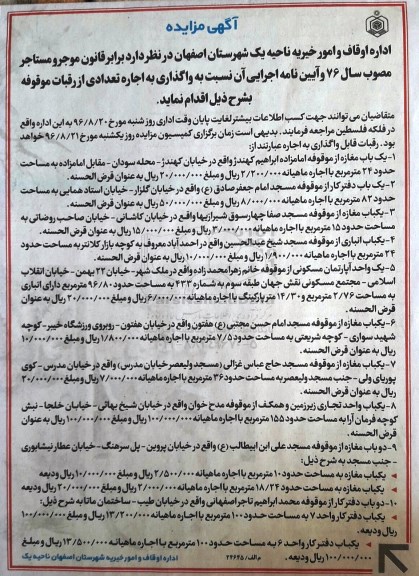 آگهی مزایده
اداره اوقاف و امور خیریه ناحیه یک شهرستان اصفهان در نظر دارد برابر قانون موجر و مستاجر
مصوب سال ۷۶ و آیین نامه اجرایی آن نسبت به واگذاری به اجاره تعدادی از رقبات موقوفه
بشرح ذیل اقدام نماید.
متقاضیان می توانند جهت کسب اطلاعات بیشتر لغایت پایان وقت اداری روز شنبه مورخ ۹۶/۸/۲۰ به این اداره واقع
در فلکه فلسطین مراجعه فرمایند. بدیهی است زمان برگزاری کمیسیون مزایده روز یکشنبه مورخ ۹۶/۸/۲۱ خواهد
بود. رقبات قابل واگذاری به اجاره عبارتند از:
۱- یک باب مغازه از موقوفه امامزاده ابراهیم کهندژ واقع در خیابان کهندژ- محله سودان - مقابل امامزاده به مساحت
حدود ۲۴ مترمربع با اجاره ماهیانه ۲/۲۰۰/۰۰۰ ریال و مبلغ ۲۰/۰۰۰/۰۰۰ ریال به عنوان قرض الحسنه.
۲- یک باب دفتر کار از موقوفه مسجد امام جعفر صادق (ع) واقع در خیابان گلزار - خیابان استاد همایی به مساحت
حدود ۸۲ مترمربع با اجاره ماهیانه ۸/۰۰۰/۰۰۰ ریال و مبلغ ۵۰/۰۰۰/۰۰۰ ریال به عنوان قرض الحسنه.
۳- یکباب مغازه از موقوفه مسجد صفا چهارسوق شیرازیها واقع در خیابان کاشانی - خیابان صاحب روضاتی به
مساحت حدود ۱۵ مترمربع با اجاره ماهیانه ۳/۰۰۰/۰۰۰ ریال و مبلغ ۱۵/۰۰۰/۰۰۰ ریال به عنوان قرض الحسنه.
۴- یکباب انباری از موقوفه مسجد شیخ عبدالحسین واقع در احمدآباد معروف به کوچه بازار کلانتر به مساحت حدود
۲۴ مترمربع با اجاره ماهیانه ۱/۹۰۰/۰۰۰ ریال و مبلغ ۱۰/۰۰۰/۰۰۰ ریال به عنوان قرض الحسنه.
۵- یک واحد آپارتمان مسکونی از موقوفه خانم زهرا محمدزاده واقع در ملک شهر- خیابان ۲۲ بهمن - خیابان انقلاب
اسلامی - مجتمع مسکونی نقش جهان طبقه سوم به شماره ۴۳۳ به مساحت حدود ۹۶/۸۰ مترمربع دارای انباری
به مساحت ۲/۷۶ مترمربع و ۱۴/۳۰ متر پارکینگ با اجاره ماهیانه ۶/۰۰۰/۰۰۰ ریال و مبلغ ۲۰۰/۰۰۰/۰۰۰ ریال به عنوان
قرض الحسنه.
۶- یکباب مغازه از موقوفه مسجد امام حسن مجتبی (ع) هفتون واقع در خیابان هفتون- روبروی ورزشگاه خیبر- کوچه
شهید سواری - کوچه شریعتی به مساحت حدود ۷/۵ مترمربع با اجاره ماهیانه ۱/۸۰۰/۰۰۰ ریال و مبلغ ۱۰/۰۰۰/۰۰۰
ریال به عنوان قرض الحسنه.
۷- یکباب مغازه از موقوفه مسجد حاج عباس غزالی (مسجد ولیعصر خیابان مدرس) واقع در خیابان مدرس - کوی
پوریای ولی - جنب مسجد ولیعصر به مساحت حدود ۳۶ مترمربع با اجاره ماهیانه ۷/۰۰۰/۰۰۰ ریال و مبلغ ۲۰/۰۰۰/۰۰۰
ریال به عنوان قرض الحسنه.
۸- یکباب واحد تجاری زیرزمین و همکف از موقوفه مدح خوان واقع در خیابان شیخ بهائی - خیابان خلجا- نبش
کوچه فرمان آرا به مساحت حدود ۱۵۵ مترمربع با اجاره ماهیانه ۱۰/۰۰۰/۰۰۰ ریال و مبلغ ۱۰۰/۰۰۰/۰۰۰ ریال به عنوان
قرض الحسنه.
۹- دو باب مغازه از موقوفه مسجد علی ابن ابیطالب (ع) واقع در خیابان پروین - پل سرهنگ - خیابان عطار نیشابوری
- جنب مسجد به شرح ذیل:
یکباب مغازه به مساحت حدود ۱۰ مترمربع با اجاره ماهیانه ۲/۵۰۰/۰۰۰ ریال و مبلغ ۱۰/۰۰۰/۰۰۰ ریال ودیعه
یکباب مغازه به مساحت حدود ۱۸/۲۴ مترمربع با اجاره ماهیانه ۲/۰۰۰/۰۰۰ ریال و مبلغ ۲۰/۰۰۰/۰۰۰ ریال ودیعه
۱۰- دو باب دفتر کار از موقوفه محمد ابراهیم تاجر اصفهانی واقع در خیابان طیب - ساختمان مانا به شرح ذیل:
یکباب دفتر کار واحد ۷ به مساحت حدود ۱۰۰ مترمربع با اجاره ماهیانه ۱۳/۲۰۰/۰۰۰ ریال و مبلغ ۱۰۰/۰۰۰/۰۰۰
ریال ودیعه.
یکباب دفتر کار واحد ۶ به مساحت حدود ۱۰۰ مترمربع با اجاره ماهیانه ۱۳/۵۰۰/۰۰۰ ریال و مبلغ
۱۰۰/۰۰۰/۰۰۰ ریال ودیعه.
م الف/ ۲۴۶۴۵
اداره اوقاف و امور خیریه شهرستان اصفهان ناحیه یک